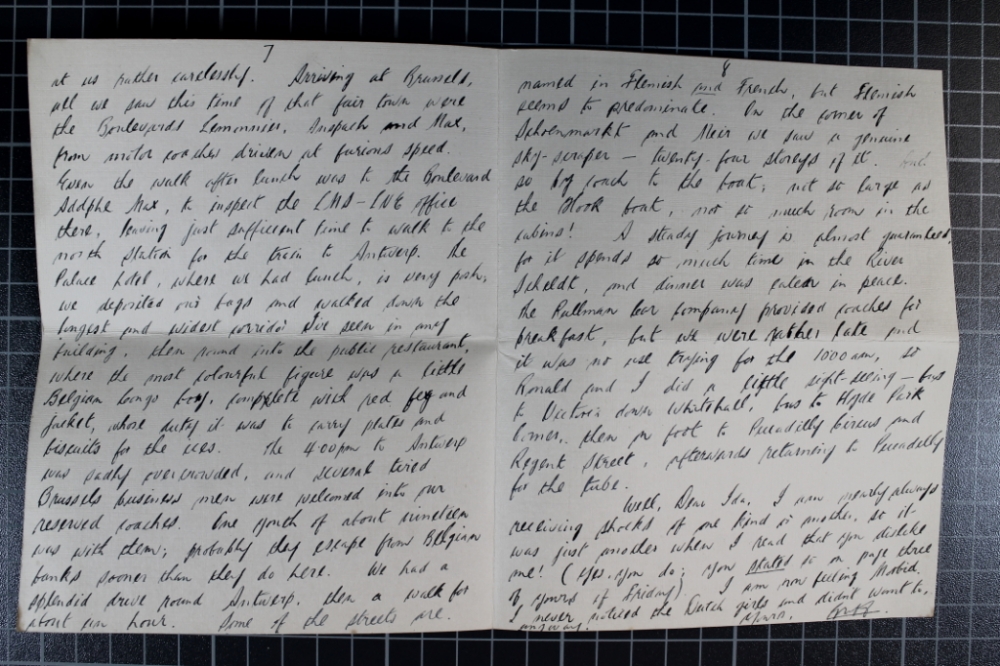 7
at us rather carelessly. Arriving at Brussels,
all we saw this time of that fair town were
the Boulevards Lemonnier, Anspach and Max,
from motor coaches driven at furious speed.
Even the walk after lunch was to the Boulevard
Adolphe Max, to inspect the LMS-LNE office
there, leaving just sufficient time to walk to the
north station for the train to Antwerp. The
Palace Hotel, where we had lunch, is very posh;
we deposited our bags and walked down the
longest and widest corridor I've seen in any
building, then round into the public restaurant,
where the most colourful figure was a little
Belgian Congo boy, complete with red fez and
jacket, whose duty it was to carry plates and
biscuits for the ices. The 4.00pm to Antwerp
was sadly overcrowded, and several tired
Brussels business men were welcomed into our
reserved coaches. One youth of about nineteen
was with them; probably they escape from Belgian
banks sooner than they do here. We had a
splendid drive round Antwerp, then a walk for
about an hour. Some of the streets are
8
named in Flemish and French, but Flemish
seems to predominate. On the corner of
Schoenmarkt and Meir we saw a genuine
sky-scraper - twenty-four storeys of it. And
so by coach to the boat; not so large as
the Hook boat, not so much room in the
cabins! A steady journey is almost guaranteed,
for it spends so much time in the River
Scheldt, and dinner was eaten in peace.
The Pullman Car Company provided coaches for
breakfast, but we were rather late and
it was no use trying for the 1000am, so
Ronald and I did a little sight-seeing - bus
to Victoria down Whitehall, bus to Hyde Park
Corner, then on foot to Piccadilly Circus and
Regent Street, afterwards returning to Piccadilly
for the tube.
Well, Dear Ida, I am nearly always
receiving shocks of one kind or another, so it
was just another when I read that you dislike
me! (Yes, you do; you stated so on page three
of yours of Friday). I am now feeling Morbid.
I never noticed the Dutch girls and didn't want to,
anyway. Yours,